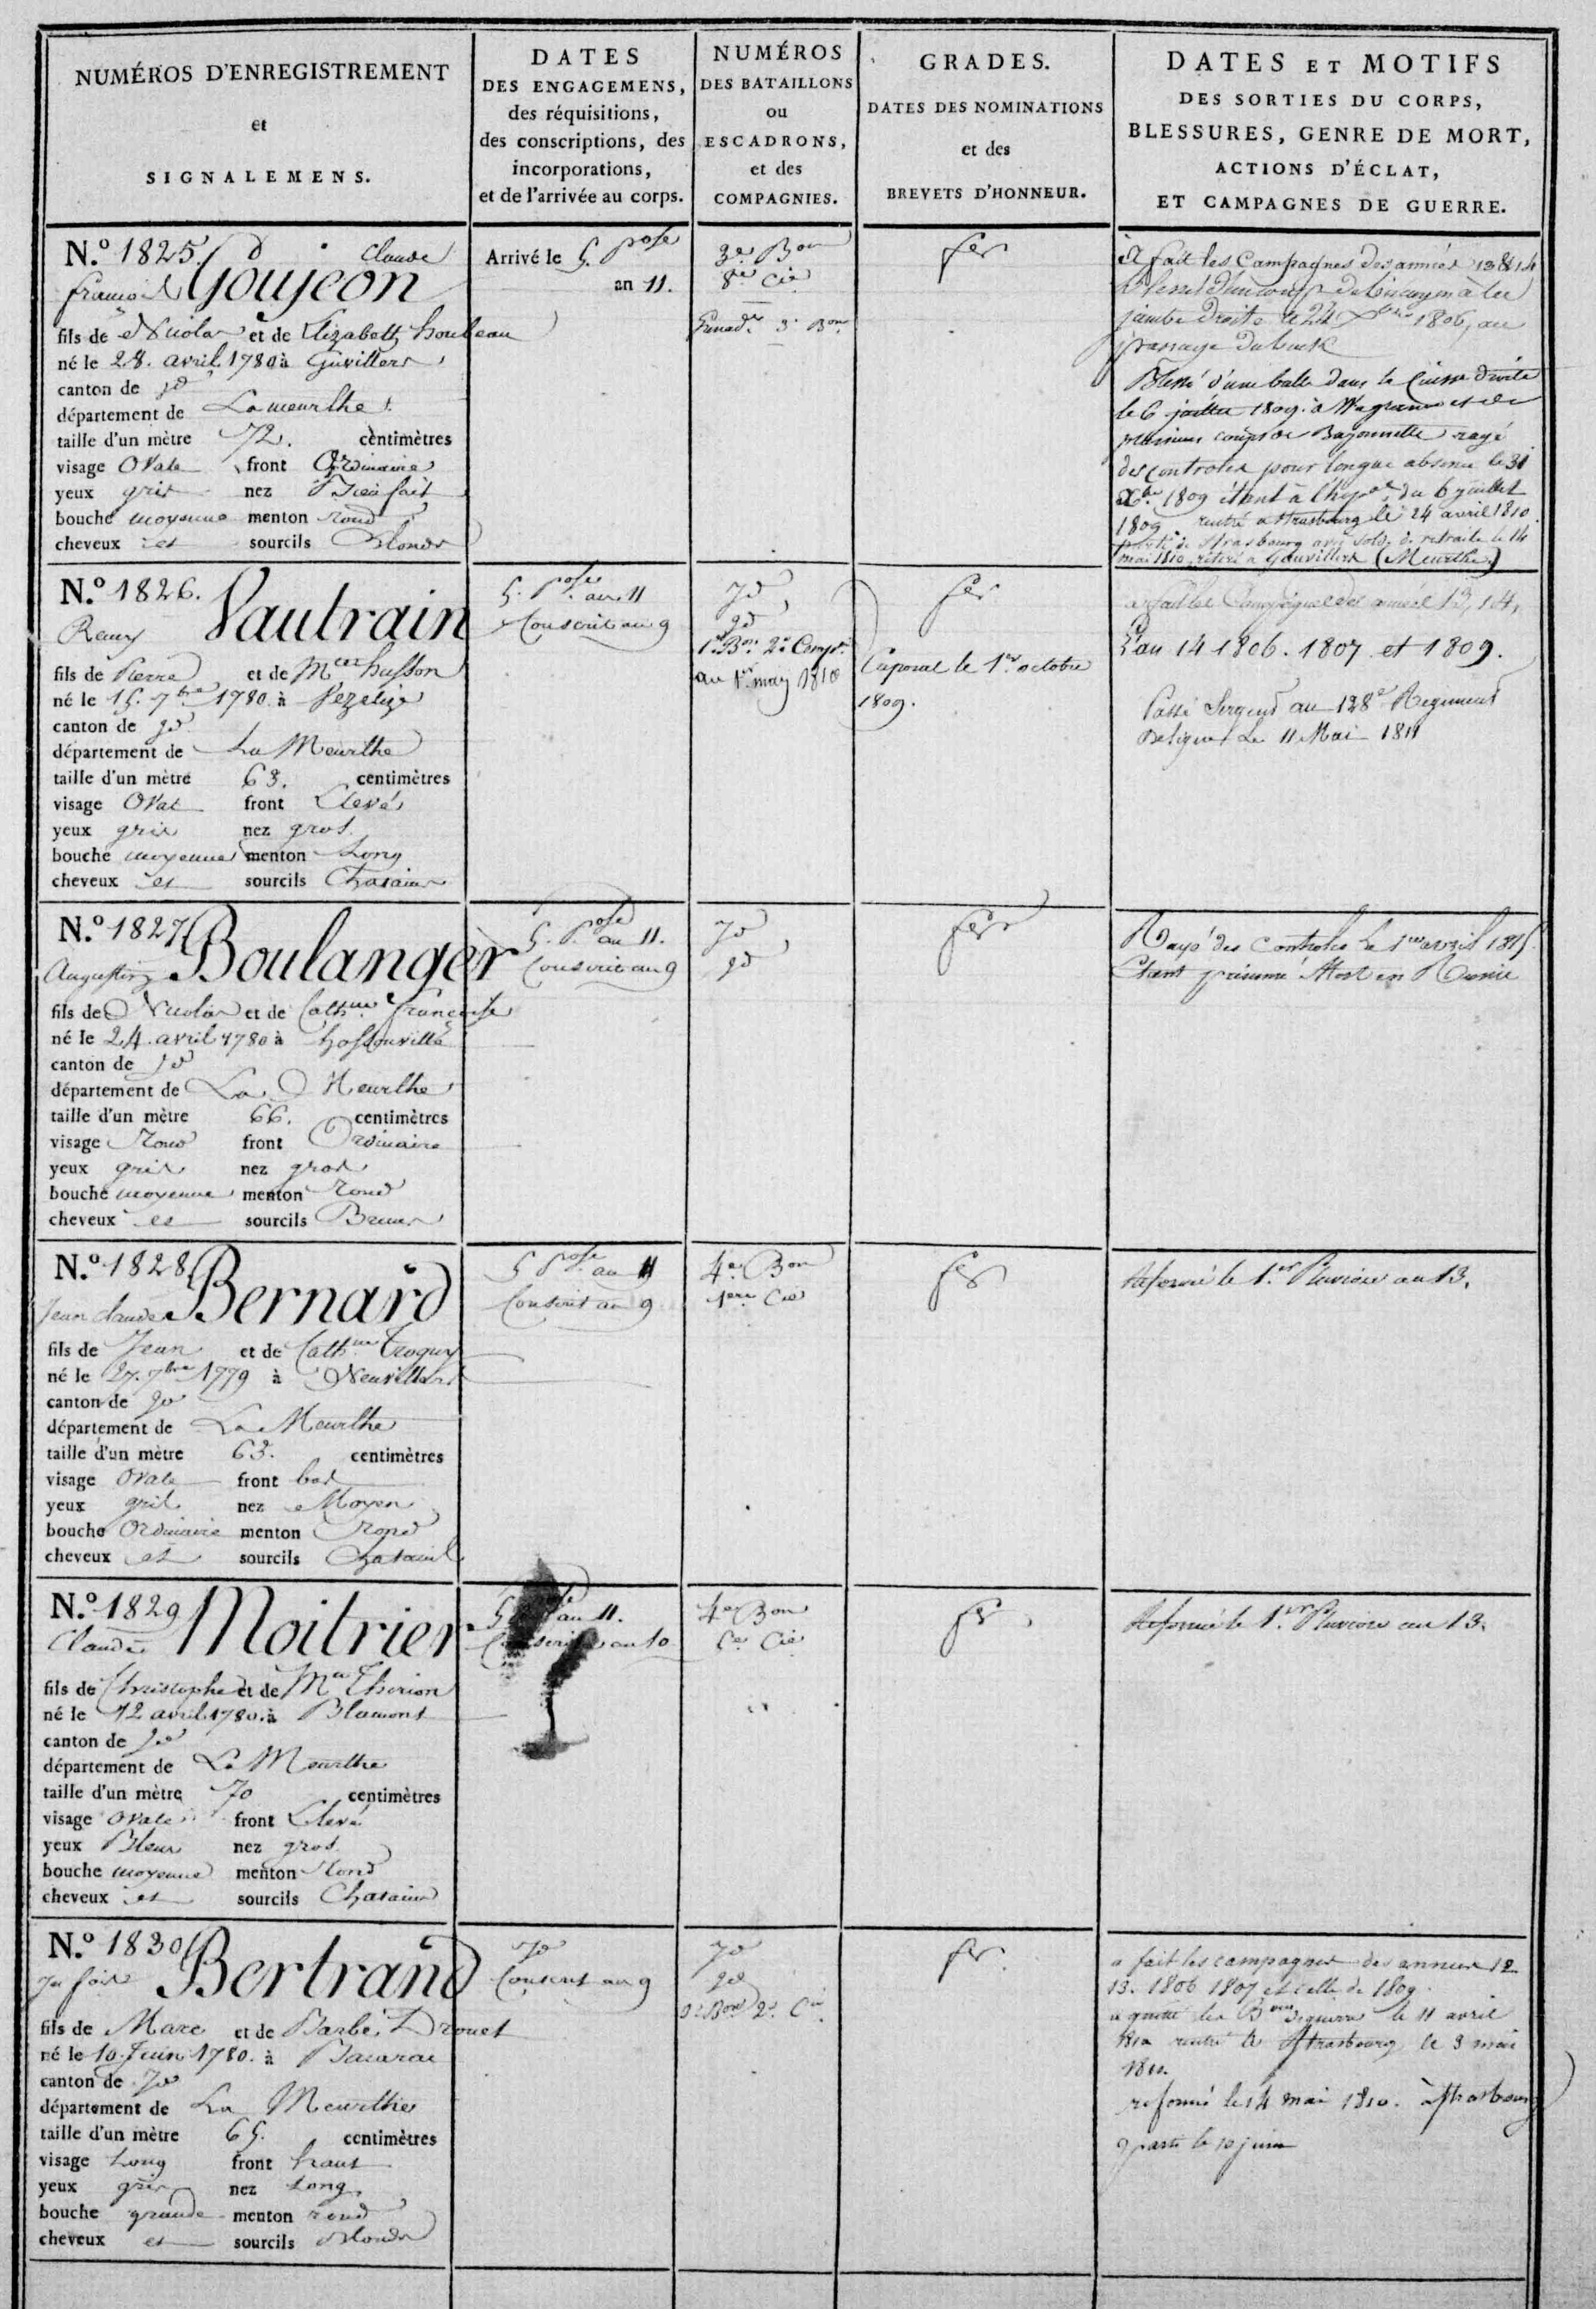 NUMÉROS D'ENREGISTREMENT
et
SIGNALEMENS.
DATES
DES ENGAGEMENS,
des réquisitions,
des conscriptions, des
incorporations,
et de l'arrivée au corps.
NUMÉROS
DES BATAILLONS
ou
ESCADRONS,
et des
COMPAGNIES.
GRADES.
DATES DES NOMINATIONS
et des
BREVETS D'HONNEUR.
DATES ET MOTIFS
DES SORTIES DU CORPS,
BLESSURES, GENRE DE MORT,
ACTIONS D'ÉCLAT,
ET CAMPAGNES DE GUERRE.
N.º 1825. Claude
Goujeon
fils de Nicolas et de Elizabeth
né le 28. avril 1780 à
canton de Jd
département de La meurthe
taille d'un mètre 72. centimètres
visage Ovale front Ordinaire
yeux gris nez Bienfait
bouche moyenne menton rond
cheveux et sourcils Blonds
Arrivé le 5. pose
an 11.
3e Bon
8e Cie
3e Bon
fer
A fait les Campagnes des années 13 & 14
jambe droite le 24 1806, au
passage du
Blessé d'une balle dans la Cuisse droite
le 6 juillet 1809. à Wagram et de
plusieurs coups de Bayonnette rayé
des controles pour longue absence le 31
Xbre 1809 étant à l'hopal du 6 juillet
1809 rentré a Strasbourg le 24 avril 1810
parti de Strasbourg avec solde de retraite le 14
mai 1810 retiré a (Meurthe)
N.º 1826. Vautrain
Remy
fils de Pierre et de Mce husson
né le 15. 7bre 1780 à Vezelize
canton de Jd
département de La Meurthe
taille d'un mètre 63. centimètres
visage Oval front Elevé
yeux gris nez gros
bouche moyenne menton Long
cheveux et sourcils Chatains
5. Pose an 11
Conscrit an 9
Jd
Jd
1er Bon 2e Compie
au 1er may 1810
fer
Caporal le 1er octobre
1809.
a fait les Campagnes des années 13, 14,
L'an 14 1806. 1807 et 1809.
Passé Sergent au 128e Regiment
De ligne Le 11 Mai 1811
N.º 1827 Boulanger
Augustin
fils de Nicolas et de Cathne françoise
né le 24. avril 1780 à
canton de Jd
département de La Meurthe
taille d'un mètre 66. centimètres
visage Rond front Ordinaire
yeux gris nez gros
bouche moyenne menton rond
cheveux et sourcils Bruns
5. Pose an 11.
Conscrit an 9
Jd
Jd
fer
Rayé des Controles le 1er avril 1815
Etant présumé Mort en Russie
N.º 1828 Bernard
Jean claude
fils de Jean et de Cathne
né le 27. 7bre 1779 à Neuviller
canton de Jd
département de La Meurthe
taille d'un mètre 63. centimètres
visage Ovale front bas
yeux gris nez Moyen
bouche Ordinaire menton Rond
cheveux et sourcils Chatains
5 Pose an 11
Conscrit an 9
4e Bon
1ere Cie
fer
Reformé le 1er Pluviose an 13.
N.º 1829 Moitrier
Claude
fils de Christophe et de Mce Thirion
né le 12 avril 1780 à Blamont
canton de Jd
département de La Meurthe
taille d'un mètre 70 centimètres
visage Ovale front Elevé
yeux Bleus nez gros
bouche moyenne menton Rond
cheveux et sourcils Chatains
5 an 11.
Conscrit an 10
4e Bon
Cie
fer
Reformé le 1er Pluviose an 13.
N.º 1830 Bertrand
fils de Marc et de Barbe Drouet
né le 10 Juin 1780. à Bacarac
canton de Jd
département de La Meurthe
taille d'un mètre 65. centimètres
visage Long front haut
yeux gris nez Long
bouche grande menton rond
cheveux et sourcils Blonds
Jd
Conscrit an 9
Jd
Jd
Bon 2e Cie
fer
a fait les campagnes des années 12
13. 1806 1807 et celle de 1809.
a quitté les Bons de guerre le 11 avril
1810 rentré à Strasbourg le 3 mai
1810.
reformé le 14 mai 1810. à Strasbourg
parti le 10 juin